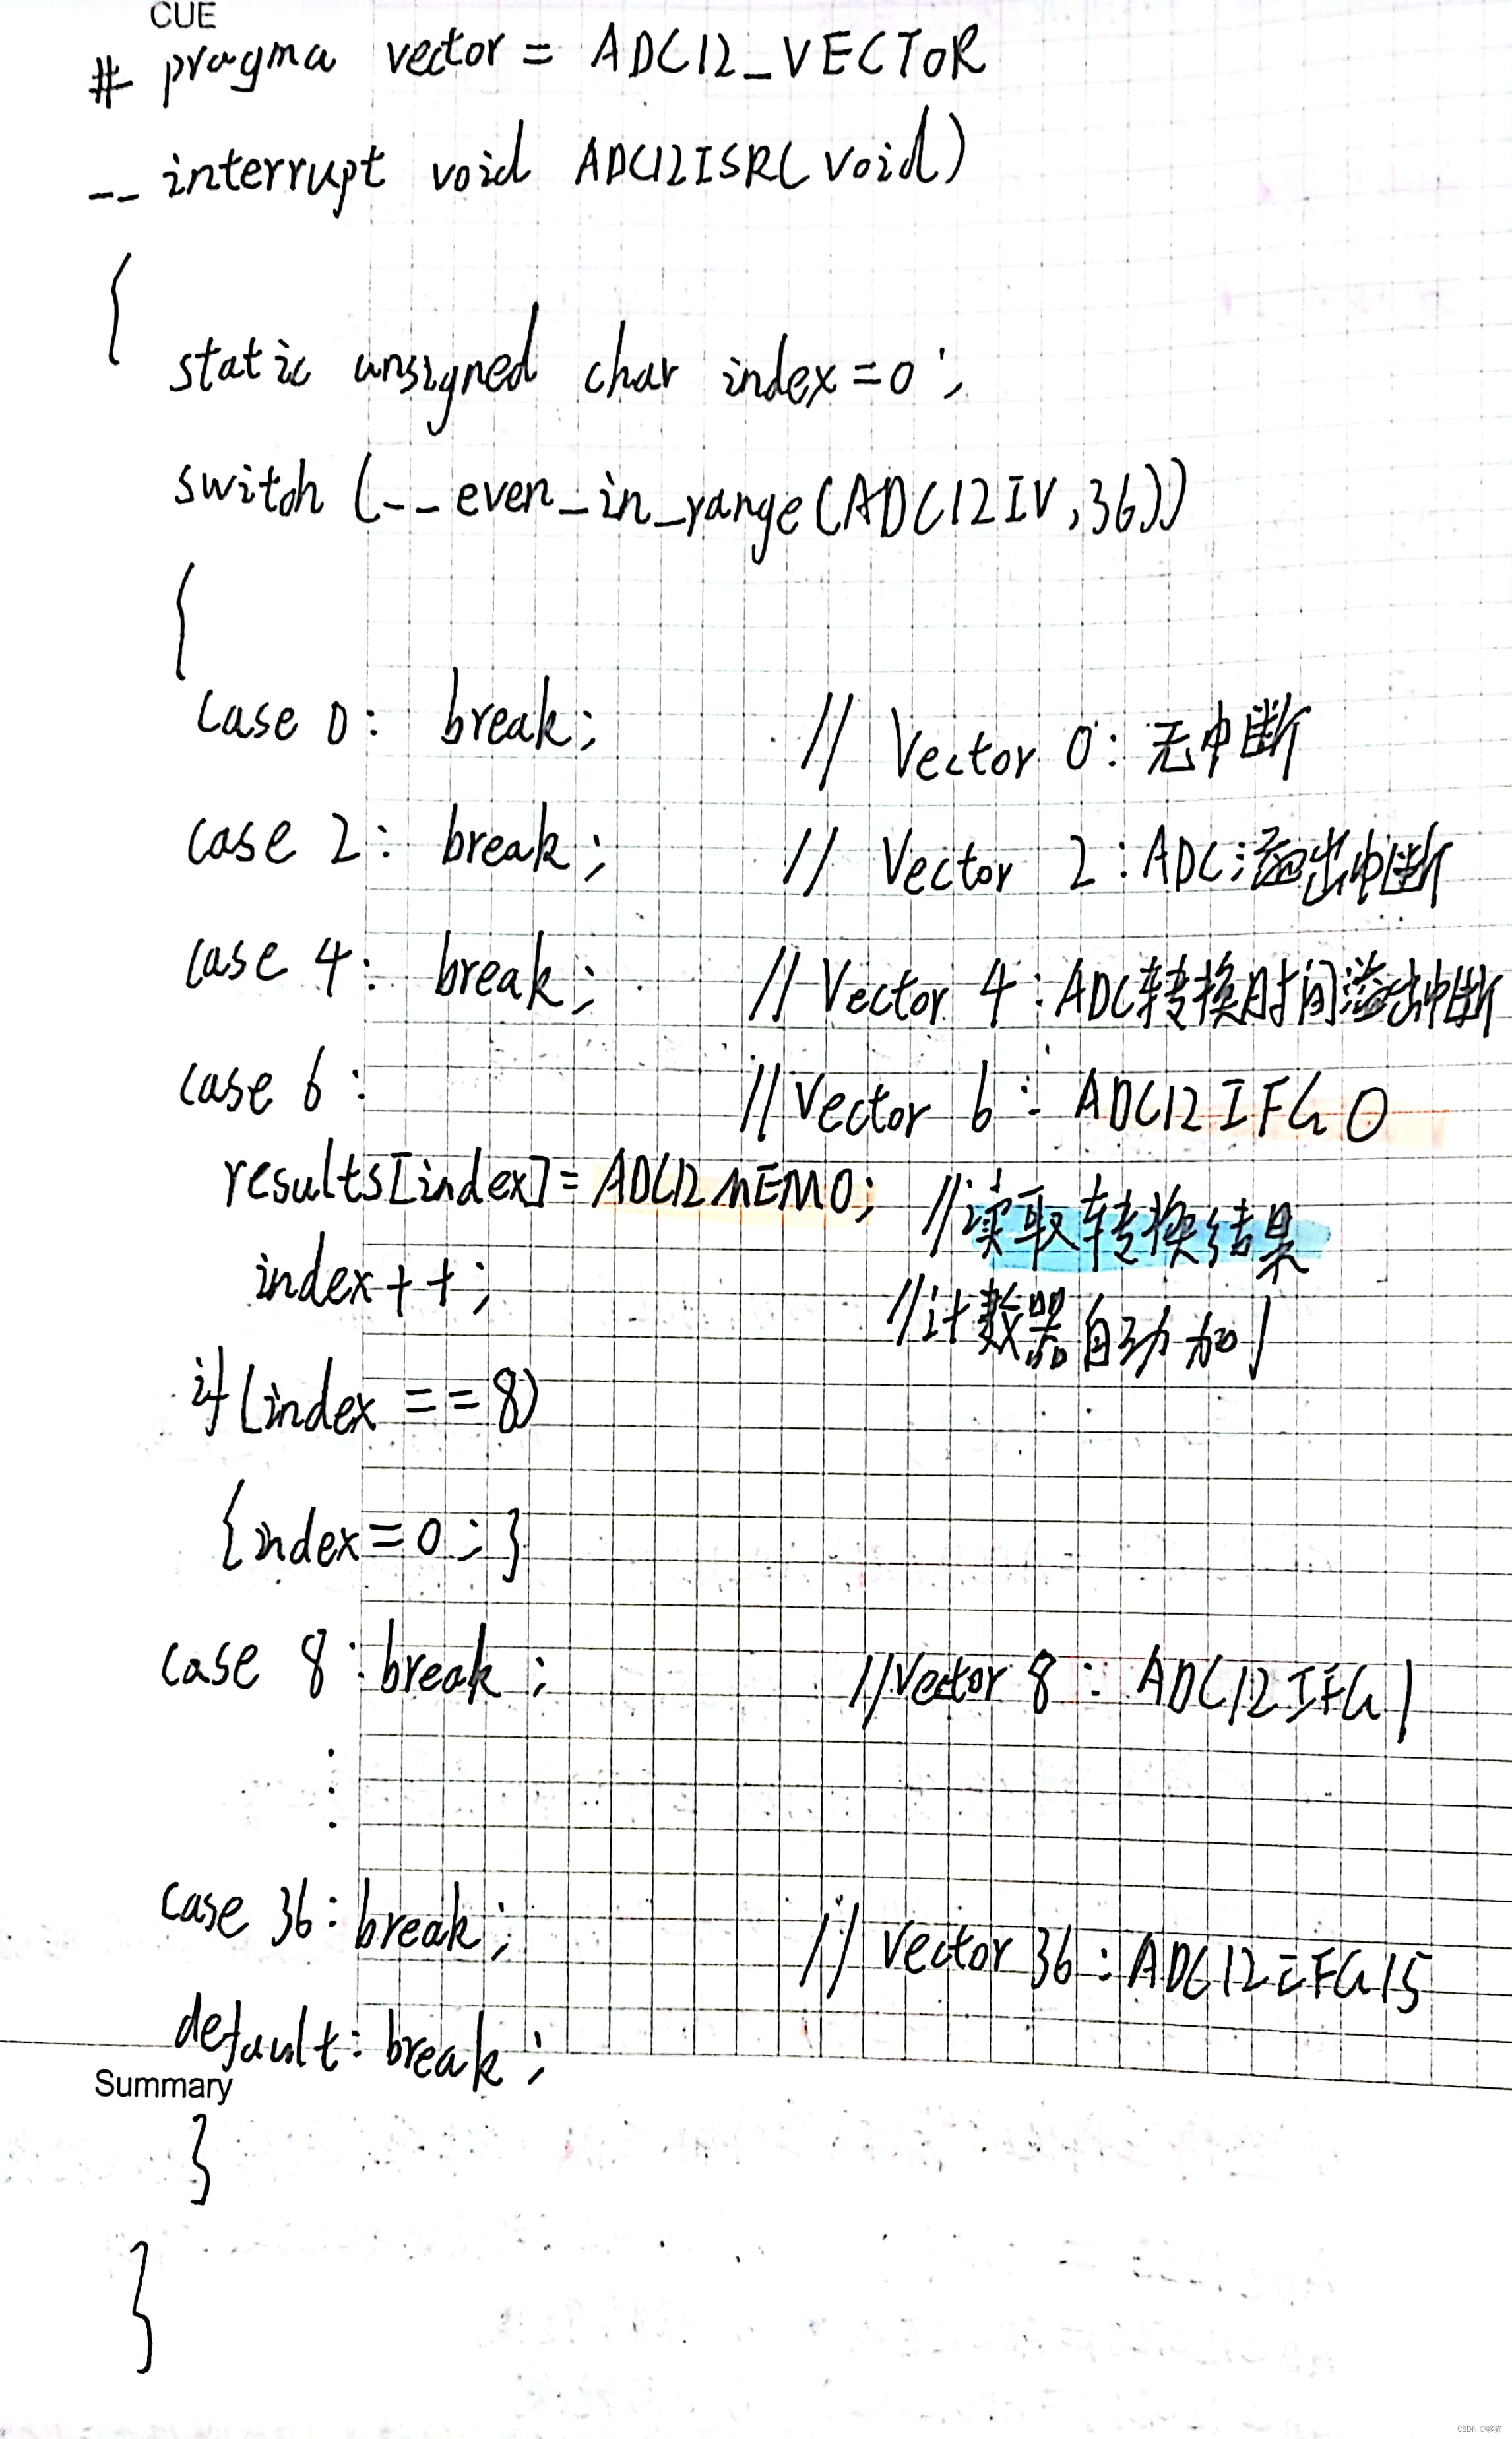 CUE
# pragma vector = ADC12_VECTOR
__ interrupt void ADC12ISR(void)
{
static unsigned char index=0;
switch (__even_in_range(ADC12IV,36))
{
case 0: break; // Vector 0: 无中断
case 2: break; // Vector 2: ADC溢出中断
case 4: break; // Vector 4: ADC转换时间溢出中断
case 6: // Vector 6: ADC12IFG0
results[index]=ADC12MEM0; //读取转换结果
index++; //计数器自动加1
if(index ==8)
{index=0;}
case 8: break; //Vector 8: ADC12IFG1
⋮
case 36: break; // Vector 36: ADC12IFG15
default: break;
Summary
}
}
CSDN @哆猫